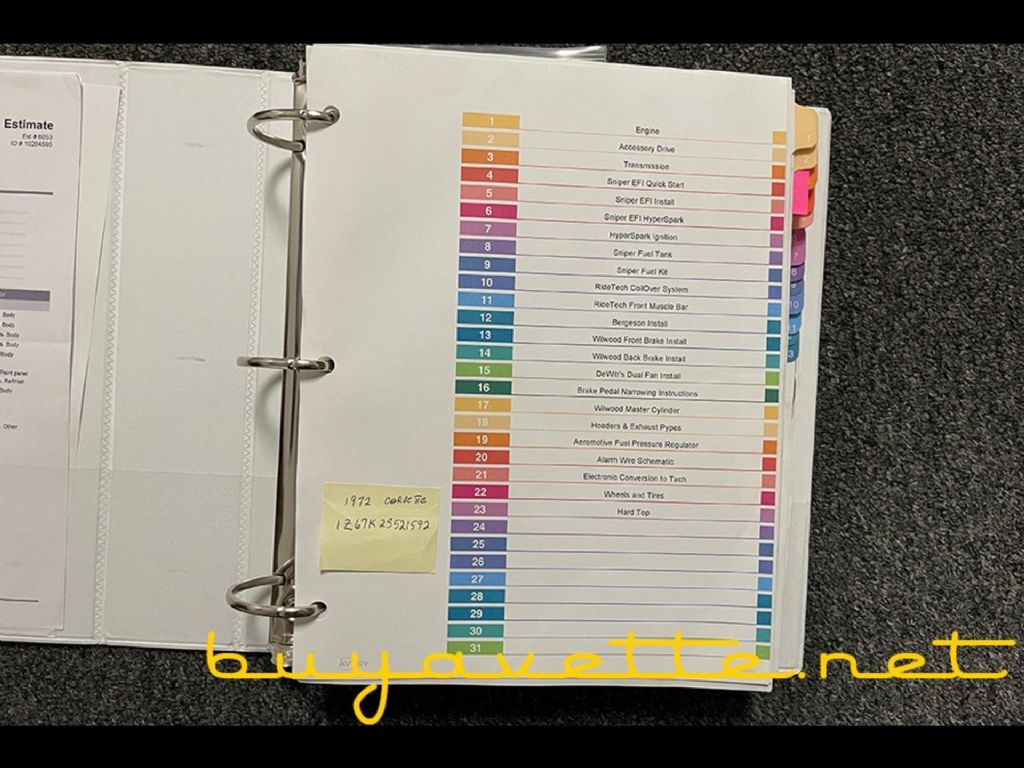 Estimate
Est # 6053
ID # 10204595
Body
Body
s. Body
s. Body
/Body
Paint panel
, Refinish
Body
, Other
1 Engine
2 Accessory Drive
3 Transmission
4 Sniper EFI Quick Start
5 Sniper EFI Install
6 Sniper EFI HyperSpark
7 HyperSpark Ignition
8 Sniper Fuel Tank
9 Sniper Fuel Kit
10 RideTech CoilOver System
11 RideTech Front Muscle Bar
12 Bergeson Install
13 Wilwood Front Brake Install
14 Wilwood Back Brake Install
15 DeWitt's Dual Fan Install
16 Brake Pedal Narrowing Instructions
17 Wilwood Master Cylinder
18 Headers & Exhaust Pypes
19 Aeromotive Fuel Pressure Regulator
20 Alarm Wire Schematic
21 Electronic Conversion to Tach
22 Wheels and Tires
23 Hard Top
24
25
26
27
28
29
30
31
1972 CORVETTE
1Z67K2S521592
AVERY
1
2
7
8
10
11
3
buyavette.net